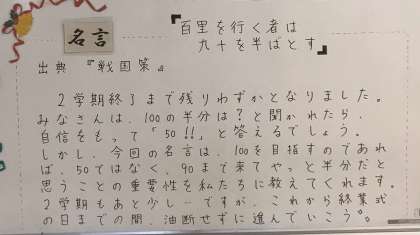 名言
『百里を行く者は
九十を半ばとす』
出典 『戦国策』
2学期終了まで残りわずかとなりました。
みなさんは、100の半分は?と聞かれたら、
自信をもって「50!!」と答えるでしょう。
しかし、今回の名言は、100を目指すのであれ
ば、50ではなく、90まで来てやっと半分だと
思うことの重要性を私たちに教えてくれます。
2学期もあと少し…ですが、これから終業式
の日までの間、油断せずに進んでいこう。